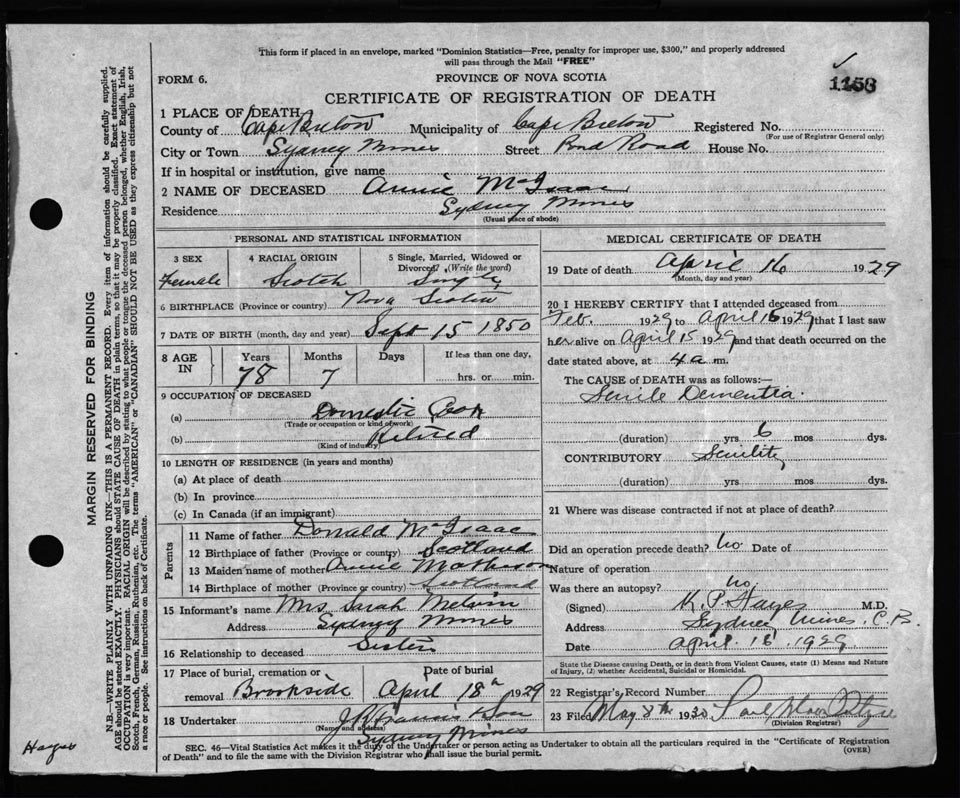 This form if placed in an envelope, marked "Dominion Statistics—Free, penalty for improper use, $300," and properly addressed
will pass through the Mail "FREE"
FORM 6.
PROVINCE OF NOVA SCOTIA
1158
CERTIFICATE OF REGISTRATION OF DEATH
1 PLACE OF DEATH
County of Cape Breton Municipality of Cape Breton Registered No.
(For use of Registrar General only)
City or Town Sydney Mines Street Pond Road House No.
If in hospital or institution, give name
2 NAME OF DECEASED Annie McIsaac
Residence Sydney Mines
(Usual place of abode)
PERSONAL AND STATISTICAL INFORMATION
3 SEX 4 RACIAL ORIGIN 5 Single, Married, Widowed or
Divorced? (Write the word)
Female Scotch Single
6 BIRTHPLACE (Province or country) Nova Scotia
7 DATE OF BIRTH (month, day and year) Sept 15 1850
8 AGE IN Years Months Days If less than one day,
78 7 hrs. or min.
9 OCCUPATION OF DECEASED
(a) Domestic Cook
(Trade or occupation or kind of work)
(b) Retired
(Kind of industry)
10 LENGTH OF RESIDENCE (in years and months)
(a) At place of death
(b) In province
(c) In Canada (if an immigrant)
Parents
11 Name of father Donald McIsaac
12 Birthplace of father (Province or country) Scotland
13 Maiden name of mother Annie Matheson
14 Birthplace of mother (Province or country) Scotland
15 Informant's name Mrs Sarah Melvin
Address Sydney Mines
16 Relationship to deceased Sister
17 Place of burial, cremation or Date of burial
removal Brookside April 18th 1929
18 Undertaker & Son
(Name and address) Sydney Mines
MEDICAL CERTIFICATE OF DEATH
19 Date of death April 16 1929
(Month, day and year)
20 I HEREBY CERTIFY that I attended deceased from
Feb. 1929 to April 16 1929 that I last saw
her alive on April 15 1929 and that death occurred on the
date stated above, at 4 a m.
The CAUSE of DEATH was as follows:—
Senile Dementia.
(duration) yrs 6 mos dys.
CONTRIBUTORY Senility
(duration) yrs mos dys.
21 Where was disease contracted if not at place of death?
Did an operation precede death? No Date of
Nature of operation
Was there an autopsy? No
(Signed) K. P. Hayes M.D.
Address Sydney Mines, C.B.
Date April 16 1929
State the Disease causing Death, or in death from Violent Causes, state (1) Means and Nature
of Injury, (2) whether Accidental, Suicidal or Homicidal.
22 Registrar's Record Number
23 Filed May 8th 1930
(Division Registrar)
SEC. 46—Vital Statistics Act makes it the duty of the Undertaker or person acting as Undertaker to obtain all the particulars required in the "Certificate of Registration
of Death" and to file the same with the Division Registrar who shall issue the burial permit.
(OVER)
MARGIN RESERVED FOR BINDING
N.B.—WRITE PLAINLY WITH UNFADING INK—THIS IS A PERMANENT RECORD. Every item of information should be carefully supplied.
AGE should be stated EXACTLY. PHYSICIANS should STATE CAUSE OF DEATH in plain terms, so that it may be properly classified. Exact statement of
OCCUPATION is very important. RACIAL ORIGIN will be described by stating to what people or tongue the deceased person belonged, whether English, Irish,
Scotch, French, German, Russian, Ruthenian, etc. The terms "AMERICAN" or "CANADIAN" SHOULD NOT BE USED as they express citizenship but not
a race or people. See instructions on back of Certificate.
Hayes